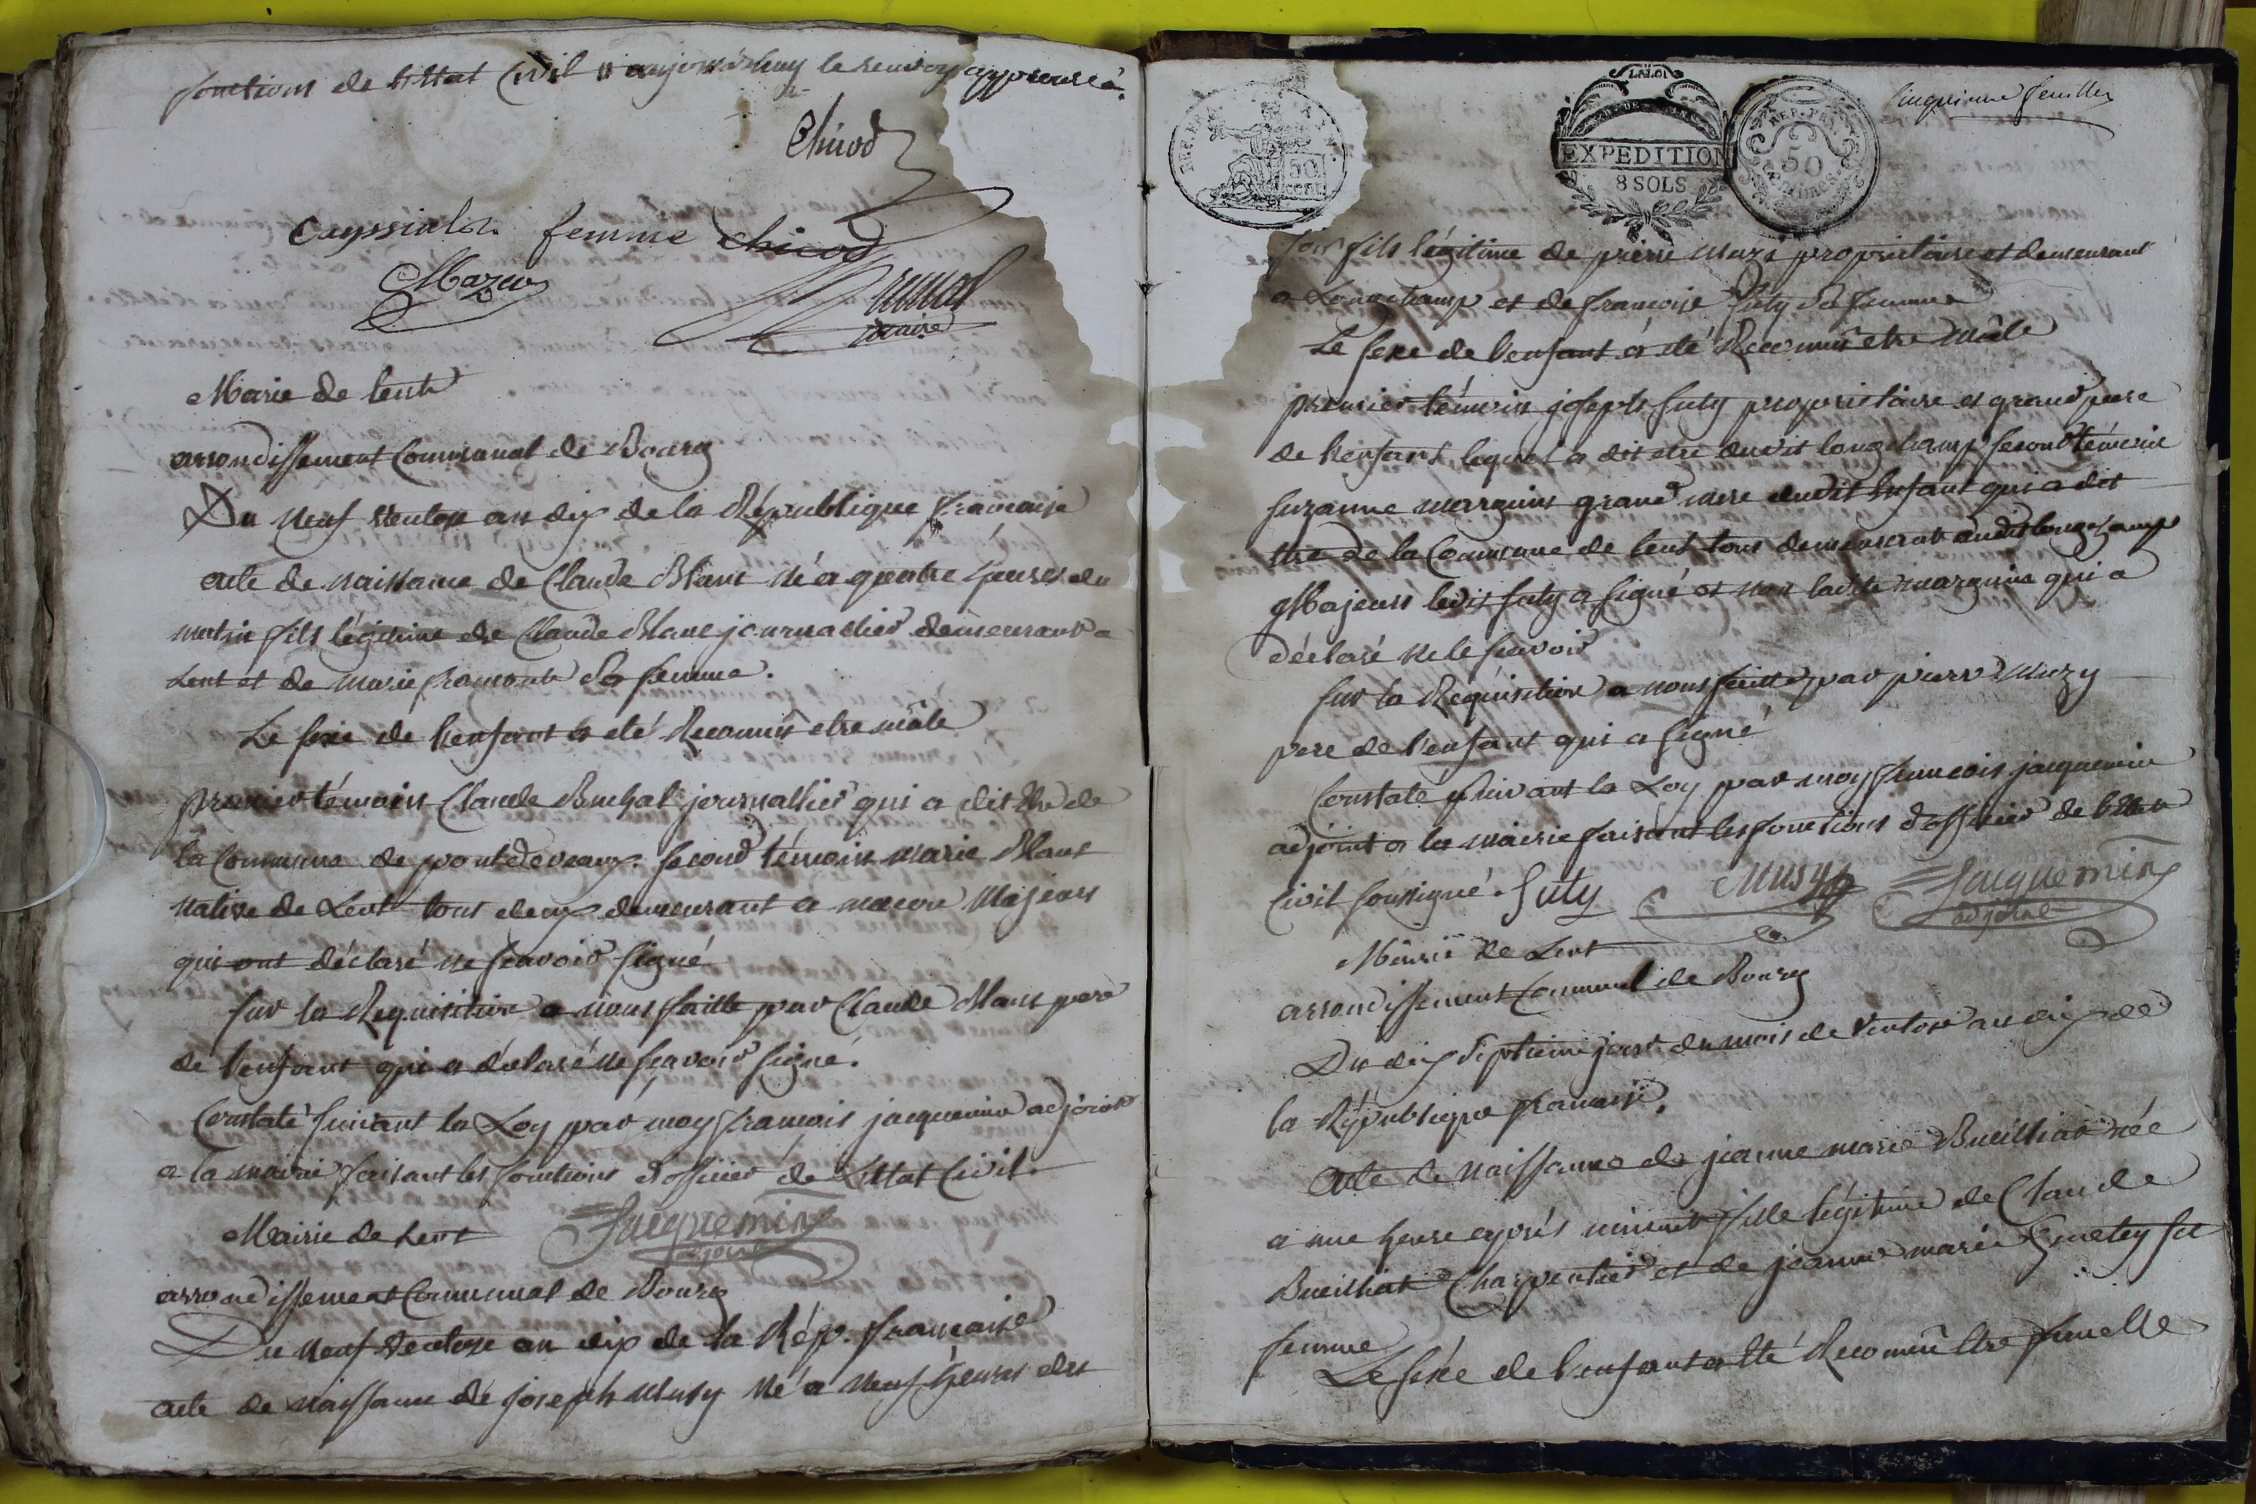 fonctions de l'Ettat Civil # aujourd'huy le renvoy approuvé.
Chicod
Cayssialon femme Chicod
Mazen
Brunal
maire
Marie de lent
arrondissement Communal de Bourg
Du neuf ventose an dix de la République francaise
acte de naissance de Claude Blanc né a quatre heures du
matin fils légitime de Claude Blanc journallier demeurant a
Lent et de marie framont sa femme.
Le sexe de l'enfant a eté Reconnus etre mâle
premier témoin Claude Buchat journallier qui a dit Etre de
la Commune de pontdeveaux. second témoin marie Blanc
native de Lent tous deux demeurant a Majeurs
qui ont déclaré ne scavoir signé
Sur la Requisition a nous faitte par Claude Blanc pere
de l'enfant qui a déclaré ne sçavoir signé.
Constaté suivant la Loy par moy françois jacquemin adjoint
a la mairie faisant les fonctions d'officier de L'Ettat Civil.
Mairie de Lent Jacquemin
adjoint
arrondissement Communal de Bourg
Du neuf Ventose an dix de la Rép. francaise
acte de naissance de joseph Musy né a neuf heures du
Cinquieme feuillet
LA LOI
50 cent
EXPEDITION
8 SOLS
REP. FRA.
50
CENTIMES
soir fils légitime de pierre Muzy propriétaire et demeurant
a Longchamp et de francoise Futy sa femme
Le sexe de l'enfant a eté Reconnus etre mâle
premier témoin joseph futy proprietaire et grand pere
de l'enfant lequel a dit etre dudit longchamp second témoin
Suzanne marguin grand mere dudit Enfant qui a dit
Etre de la Commune de lent tous demeurant audit longchamp
Majeurs ledit futy a signé et non ladite marguin qui a
déclaré ne le scavoir
Sur la Réquisition a nous faitte par pierre Muzy
pere de l'enfant qui a signé
Constaté suivant la Loy par moy francois jacquemin
adjoint a la mairie faisant les fonctions d'officier de l'Ettat
Civil soussigné. futy Musy Jacquemin
adjoint
Mairie de Lent
arrondissement Communal de Bourg
Du dix septieme jour du mois de Ventose an dix de
la République francaise.
Acte de naissance de jeanne marie Bueilliat née
a une heure après minuit fille légitime de Claude
Bueilliat Charpentier et de jeanne marie sa
femme
Le sexe de l'enfant a Eté Reconnû Etre femelle